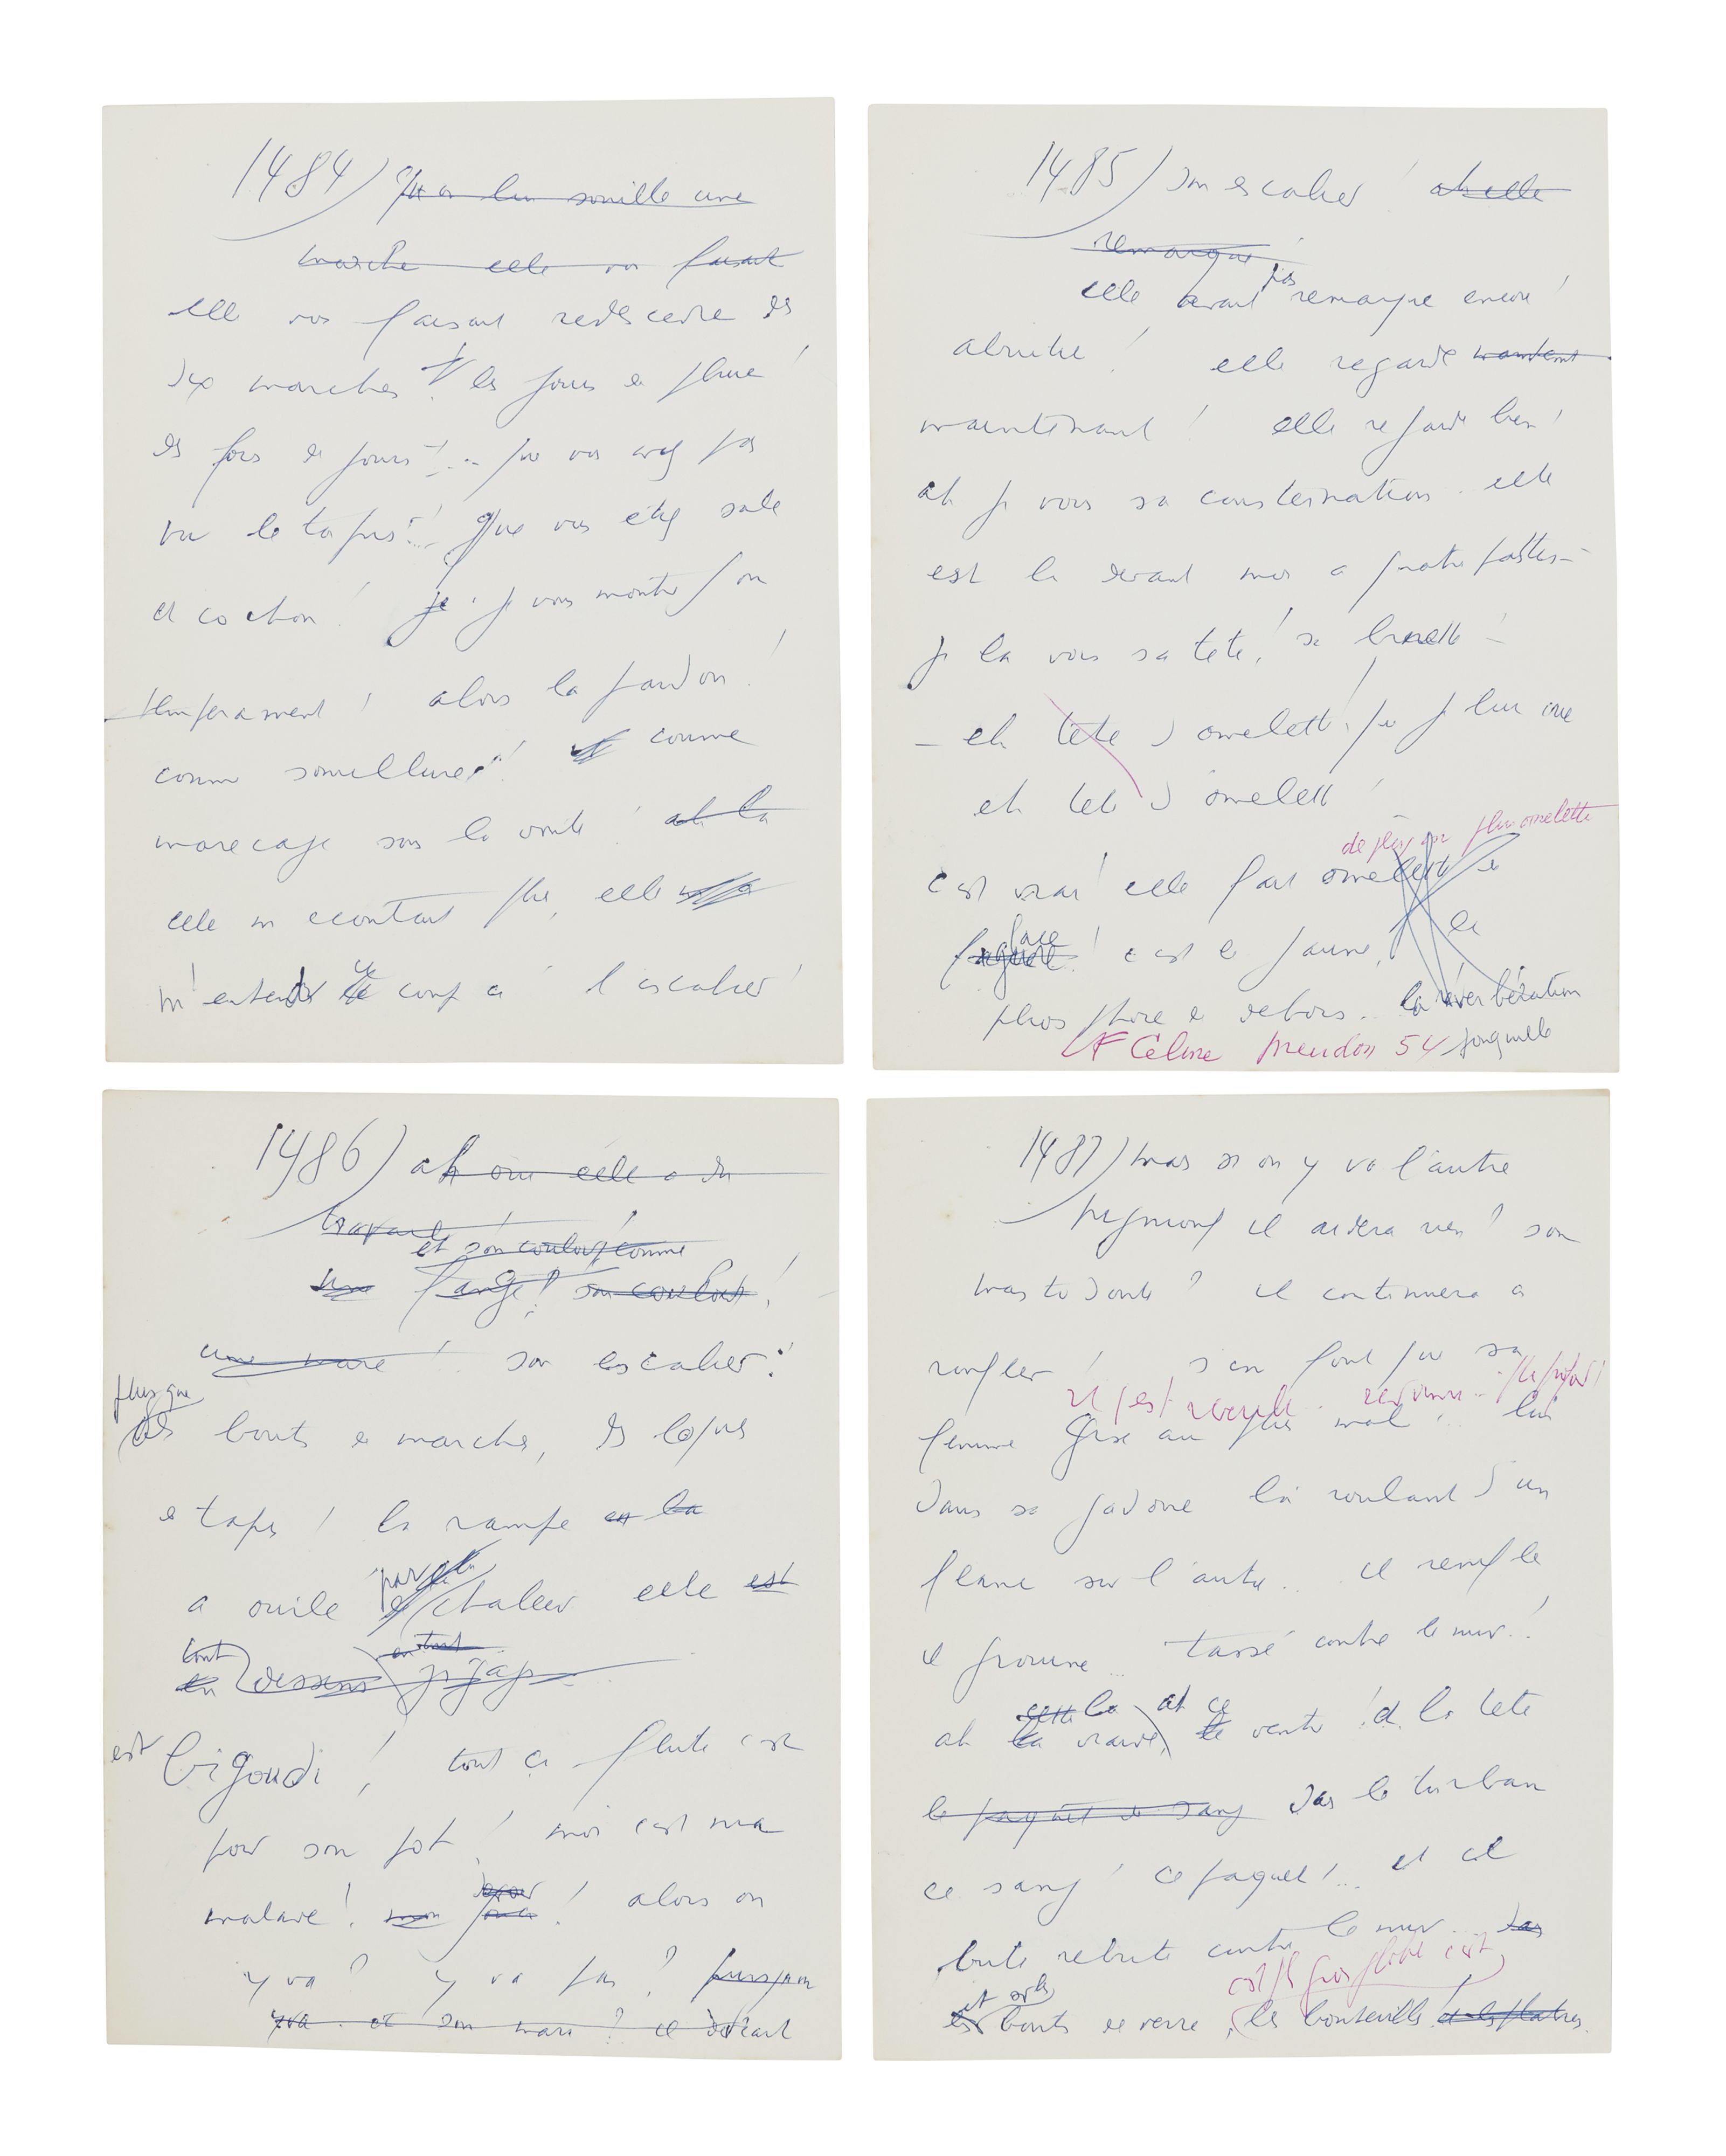 1484) Qu on lui souille une
marche elle vous faisait
elle vous faisait redescendre des
dix marches ! les jours de pluie !
des fois de jours !... que vous avez pas
vu le tapis !... que vous étiez sale
et cochon ! je. je vous montre son
temperament ! alors là pardon !
comme souillures ! comme
marecage sous la voute ! ah la
elle m ecoutait plus, elle
m'entend ce coup ci l escalier !
1485) son escalier ! ah elle
remarque !
elle avait pas remarque encore !
abrutie ! elle regarde maintenant
maintenant ! elle regarde bien !
ah je vois sa consternation. elle
est la devant moi a quatre pattes -
je la vois sa tete ! sa binette -
- eh tete d omelette ! que je lui crie
eh tete d omelette !
de plus en plus omelette
c est vrai ! elle fait omelette de
face
faguet ! c est le jaune, le
phosphore de dehors.. la réverbération
LF Céline Meudon 54 jonquille
1486) ah oui elle a du
travail !
et son couloir comme
une fange ! son couloir !
une mare ! son escalier !
plus que
des bouts de marches, des loques
de tapis ! la rampe en la
par la
a ourlé de chaleur elle est
tout en tout
en dessous zigzags
est bigoudi ! tout ça flute c est
pour son fot ! moi c est ma
malade ! mon ! alors on
y va ? y va pas ? puisqu on
y va. et son mari ? il serait
1487) mais si on y va l'autre
Pegmouf il aidera rien ! son
mastodonte ? il continuera a
ronfler ! s en fout que sa
il s est revenu..
femme gise au plus mal !.. lui
dans sa gadoue là roulant d un
flanc sur l'autre.. il renifle
il grogne... tassé contre le mur !
cette la ah ce
ah la vraie, le ventre ! et la tete
le paquet de sang dans le turban
ce sang ! ce paquet !... et il
bute rebute contre le mur.. dans
c est
et os
les bouts de verre, les bouteilles et les platres.